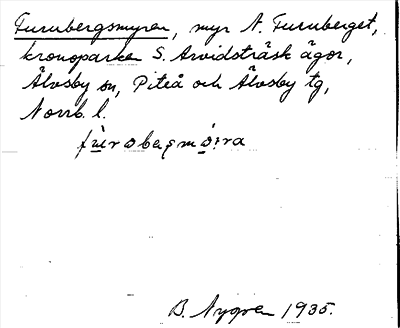 Furubergsmyren, myr N. Furuberget,
kronoparken S. Arvidsträsk ägor,
Älvsby sn, Piteå och Älvsby tg,
Norrb. l.
B. Nygren 1935.